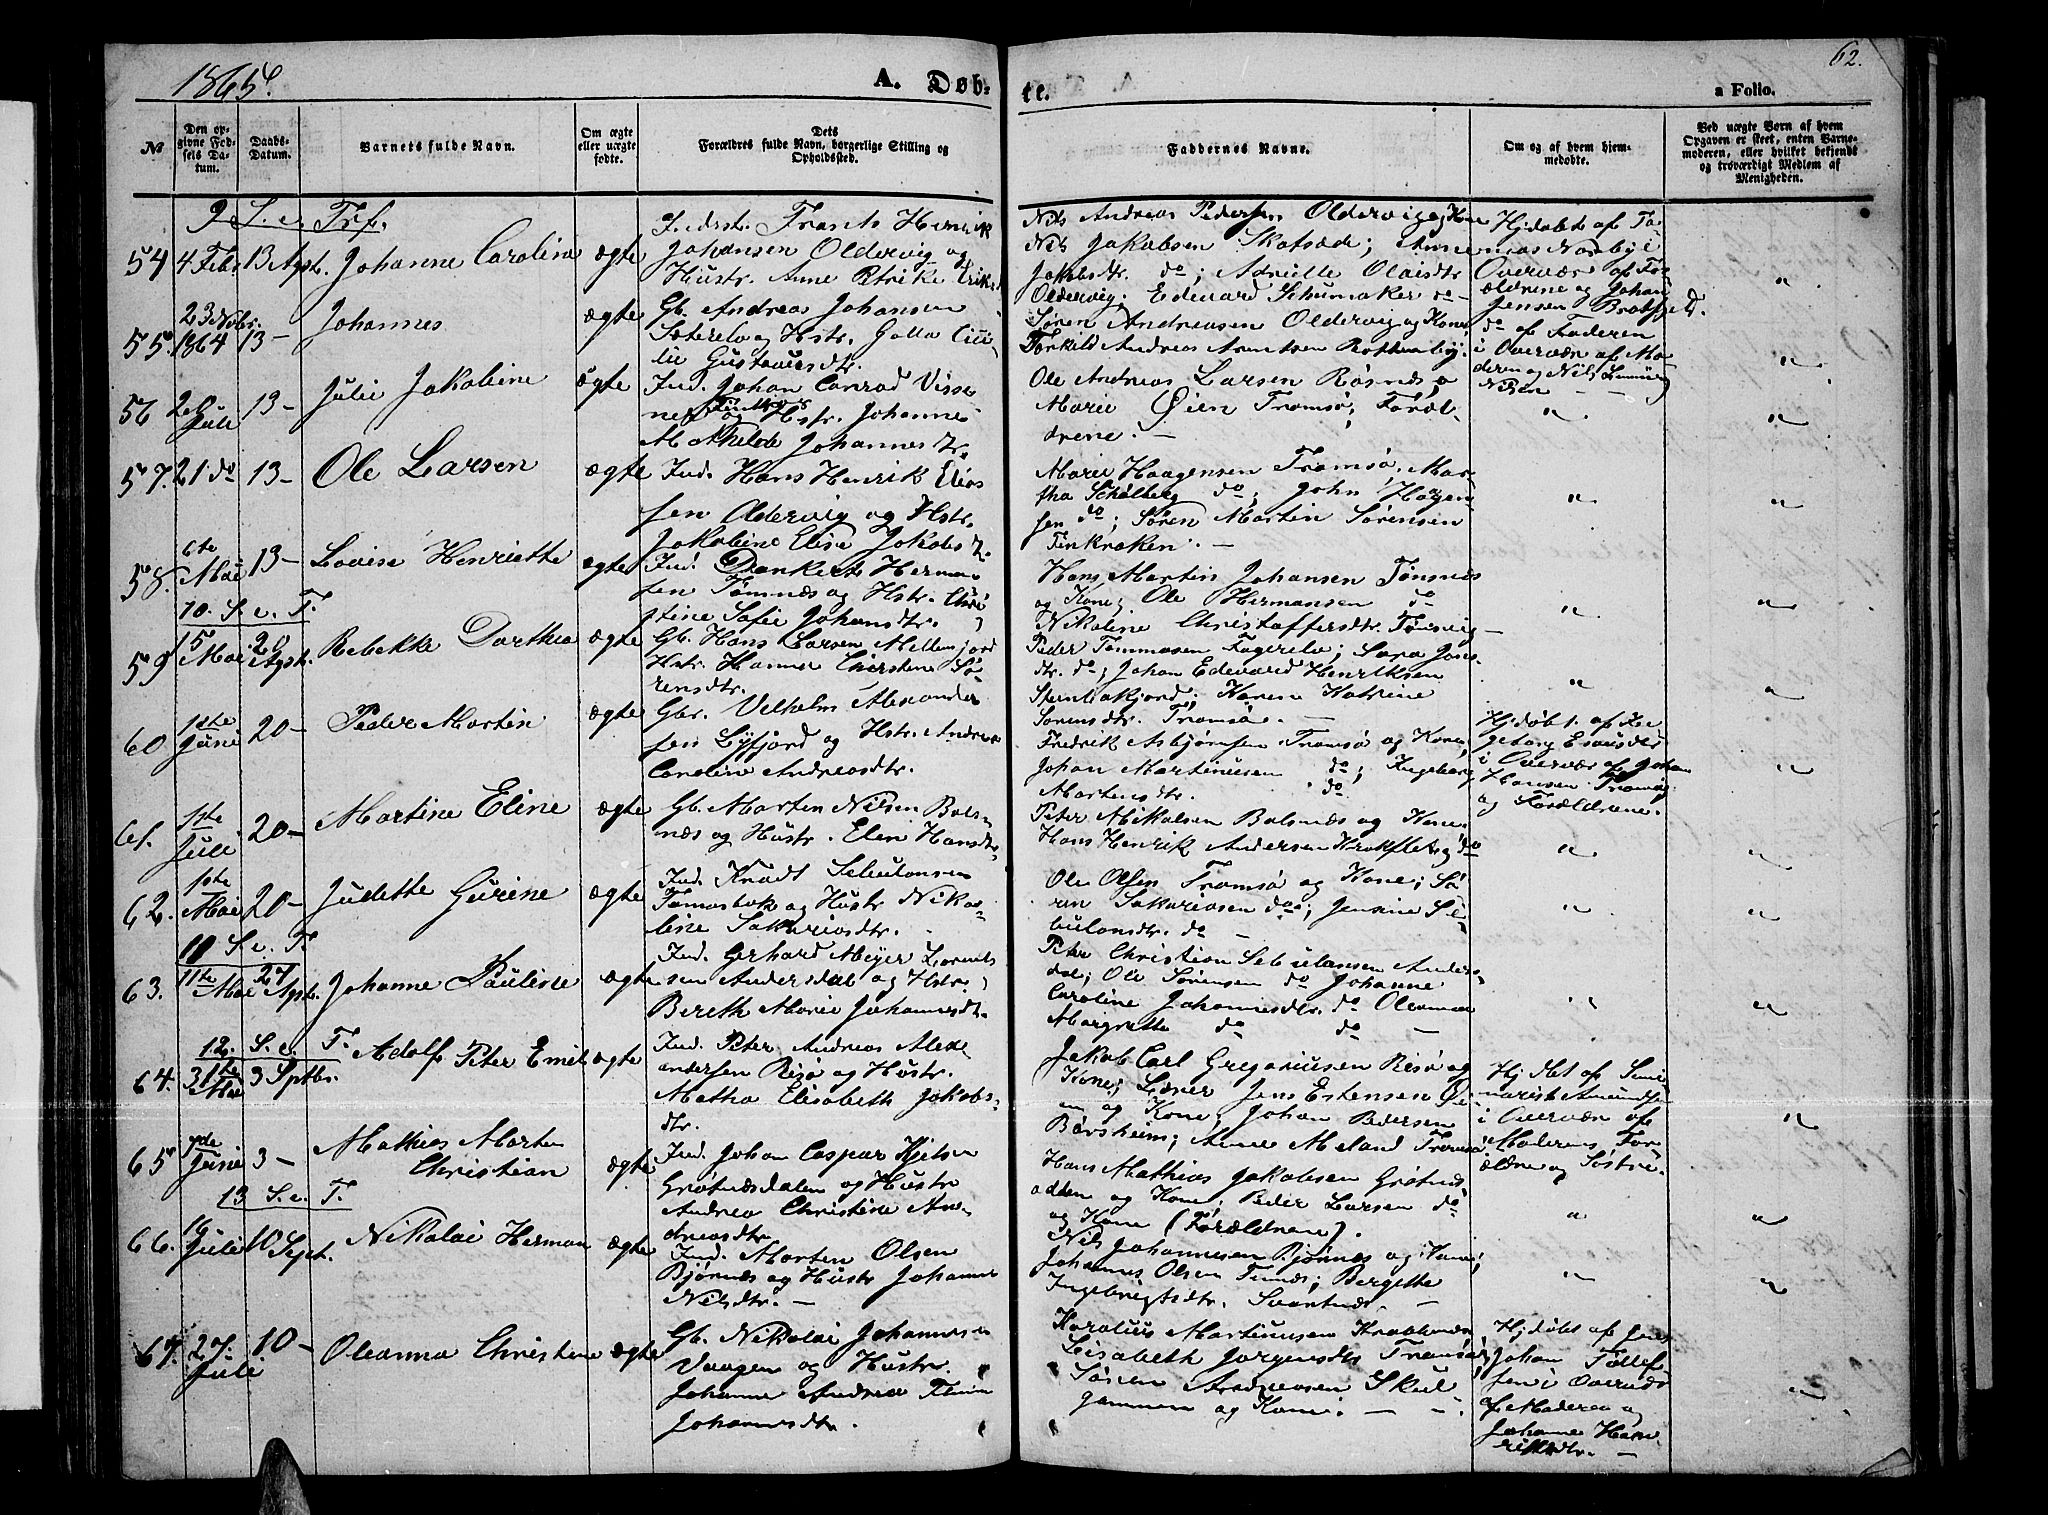 1865.
A. Døb-
te.
62.
a Folio.
№
Den op-
givne Fød-
sels Da-
tum.
Daabs-
Datum.
Barnets fulde Navn.
Om ægte
eller uægte
fødte.
Dets
Forældres fulde Navn, borgerlige Stilling og
Opholdssted.
Faddernes Navne.
Om og af hvem hjem-
medøbte.
Ved uægte Børn af hvem
Opgaven er skeet, enten Barne-
moderen, eller hvilket bekjendt
og troværdigt Medlem af
Menigheden.
9 S. e. Tref.
54 4 Febr 13 Agst. Johanne Caroline ægte
Inderst. Frants Henrik
Johansen Oldervig og
Hustr. Anne Petrike
Nils Andreas Pedersen Oldervig og Kone
Nils Jakobsen Skatsæde; Anne
Jakobsdtr. do; Olaisdtr
Oldervig; Edevard Schumaker do
Hj. døbt af To-
mas Norbye i
Overvær af For
ældrene og Johan
Jensen
55. 23 Nobr. 1864 13- Johannes ægte
Gb. Andreas Johansen
og Hstr.
Gustavusdtr.
Søren Andreasen Oldervig og Kone;
Torkild Andreas Arentsen
do af Faderen
i Overvær af Mo
deren og Nils
Nilsen
56 2 Juli 13- Julie Jakobine ægte
Ind. Johan Conrad
og Hstr. Johanne
Mathilde Johannesdtr.
Ole Andreas Larsen
Marie Øien Tromsø; Foræl-
drene. -
57. 21 do 13- Ole Larsen ægte
Ind. Hans Henrik Elias
sen Oldervig og Hstr.
Jakobine Elise Jakobsdtr.
Marie Haagensen Tromsø, Mar
tha Schølberg do; John Hagen
sen do; Søren Martin Sørensen
Finkroken. -
58. 6te Mai 13- Lovise Henriette ægte
Ind. Dankert Herman
sen Tønsnes og Hstr. Chri
stine Sofie Johansdtr.
Hans Martin Johansen Tønsnes
og Kone; Ole Hermansen do
Nikoline Christoffersdtr.
10. S. e. T.
59 15 Mai 20 Agst. Rebekke Dorthea ægte
Gb. Hans Larsen Mellemjord
Hstr. Hanna Chirstine Sø
rensdtr.
Peder Tommasen Fagerelv; Sara Jens
dtr. do; Johan Edevard Henriksen
; Karen Katrine
Sørensdtr. Tromsø. -
60 1ste Juni 20- Peder Martin ægte
Gbr. Vilhelm Alexander
sen Lyfjord og Hstr. Andrea
Caroline Andreasdtr.
Fredrik Asbjørnsen Tromsø og Kone,
Johan Martinusen do; Ingeborg
Martensdtr. do
Hj. døbt. af In
geborg Esaiasdtr
i Overvær af Johan
Hansen Tromsø
og Forældrene.
61. 1ste Juli 20- Martine Eline ægte
Gb. Morten Nilsen Bals
næs og Hustr. Elen Hansdtr.
Peter Mikalsen Balsnæs og Kone
Hans Henrik Andersen do
62. 1ste Mai 20- Judette Gurine ægte
Ind. Knudt Sebulonsen
Tomasbak og Hustr Niko-
line Sakariasdtr.
Ole Olsen Tromsø og Kone; Sø
ren Sakariasen do; Jensine Se
bulonsdtr. do -
11 S. e. T.
63. 11te Mai 27 Agst. Johanne Pauline ægte
Ind. Gerhard Meyer Lorents
sen Andersdal og Hstr.
Bereth Marie Johannesdtr.
Peter Christian Sebulansen Anders-
dal; Ole Sørensen do Johanne
Caroline Johannesdtr. do Oleanna
Margrethe do do -
12. S. e. T.
64. 31te Mai 3 Sptbr. Adolf Peter Emil ægte
Ind. Peter Andreas Alex
andersen Risø og Hustr.
Matha Elisabeth Jakobs-
dtr.
Jakob Carl Gregoriusen Risø og
Kone; Lærer Jens Estensen Øi
en og Kone; Johan Pedersen
Børsheim; Anne Meland Tromsø
Hj. døbt af Semi
narist Amundsen
i Overvær af
Moderens For-
ældre og Søstre.
65 7de Juni 3- Mathias Morten
Christian ægte
Ind. Johan Caspar Kjelsen
Grøtnæsdalen og Hustr
Andrea Christine An-
dreasdtr.
Hans Mathias Jakobsen Grøtnæs
odden og Kone; Peder Larsen do
og Kone (Forældrene).
13 S. e. T.
66. 16 Juli 10 Sept. Nikolai Herman ægte
Ind. Morten Olsen
Bjørnæs og Hustr Johanna
Nilsdtr. -
Nils Johannesen Bjørnæs og Kone;
Johannes Olsen ; Bergette
Ingebrigtsdtr. Svartnæs. -
67. 27. Juli 10- Oleanna Christine ægte
Gb. Nikolai Johannesen
Vaagen og Hustr.
Johanne Andrea
Johannesdtr.
Karolius Martinusen
Lisabeth Jørgensdtr Tromsø,
Søren Andreasen Skul
gammen og Kone. - -
Hj. døbt af Jens
Johan Tollef
sen i Overvær
af Moderen og
Johanne Hen-
riksdtr. -